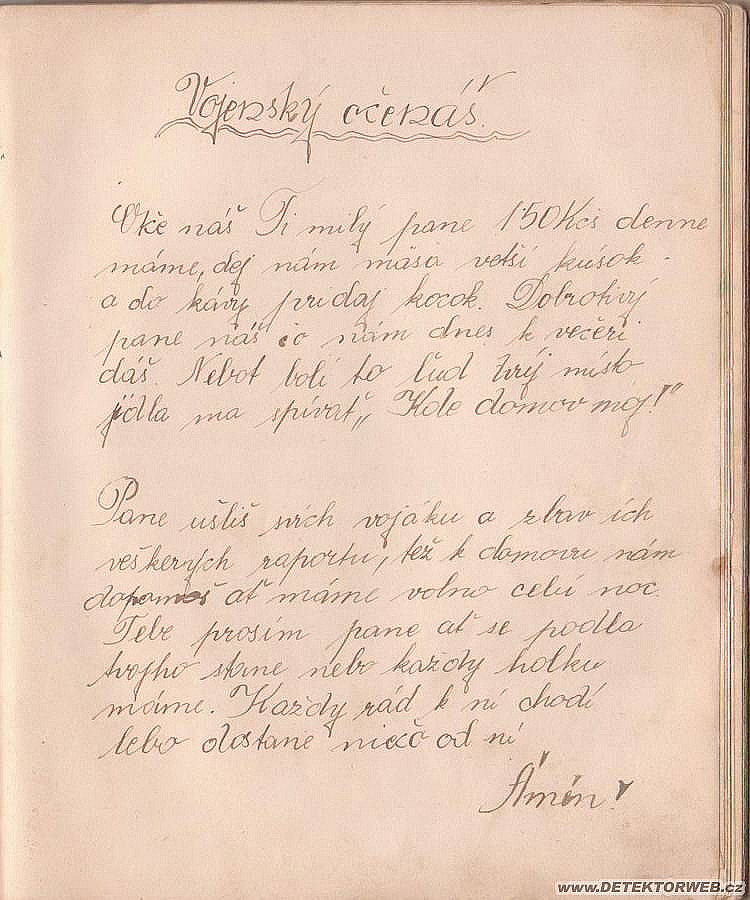 Vojenský očenáš.
Otče náš Ti milý pane 1·50 Kčs denne
máme, dej nám mäsa vetší kúsok -
a do kávy pridaj kocok. Dobrotivý
pane náš čo nám dnes k večeri
dáš. Nebot bolí to ľud tvýj místo
jídla ma spívať „Kde domov moj!"
Pane ušliš svích vojáku a zbav ích
veškerých raportu, též k domovu nám
dopomoš ať máme volno celú noc.
Tebe prosím pane ať se podla
tvojho stane nebo každy holku
máme. Každy rád k ní chodí
lebo dostane niečo od ní
Ámén!
www.DETEKTORWEB.cz